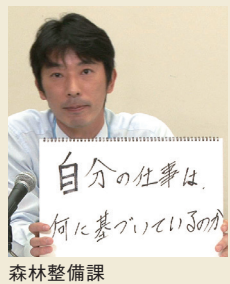 自分の仕事は、
何に基づいているのか
森林整備課